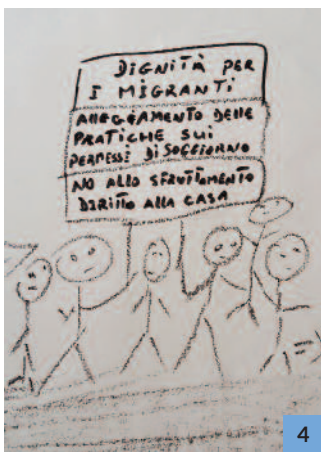 DIGNITÀ PER
I MIGRANTI
ALLEGGIAMENTO DELLE
PRATICHE SUI
PERMESSI DI SOGGIORNO
NO ALLO SFRUTTAMENTO
DIRITTO ALLA CASA
4